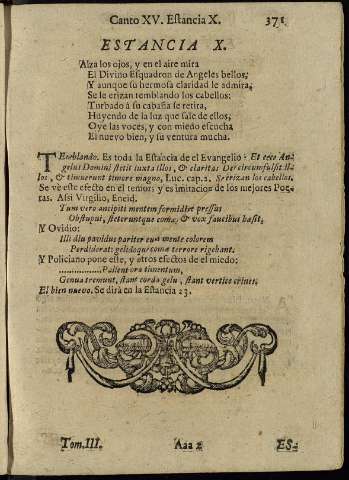 Canto XV. Estancia X. 371
ESTANCIA X.
Alza los ojos, y en el aire mira
El Divino Esquadron de Angeles bellos;
Y aunque su hermosa claridad le admira,
Se le erizan temblando los cabellos:
Turbado à su cabaña se retira,
Huyendo de la luz que sale de ellos,
Oye las voces, y con miedo escucha
El nuevo bien, y su ventura mucha.
TEmblando. Es toda la Estancia de el Evangelio: Et ecce An-
gelus Domini stetit iuxta illos, & claritas Dei circumfulsit il-
los, & timuerunt timore magno, Luc. cap. 2. Se erizan los cabellos.
Se vè este efecto en el temor; y es imitacion de los mejores Poe-
tas. Assi Virgilio, Eneid.
Tum vero ancipiti mentem formidine pressus
Obstupui, steteruntque comæ, & vox faucibus hæsit,
Y Ovidio:
Illi diu pavidus pariter cum mente colorem
Perdiderat: gelidoque comæ terrore rigebant.
Y Policiano pone este, y otros efectos de el miedo:
................. Pallent ora timentum,
Genua tremunt, stant corda gelu, stant vertice crines,
El bien nuevo. Se dirà en la Estancia 23.
Tom. III. Aaa 2 ES-